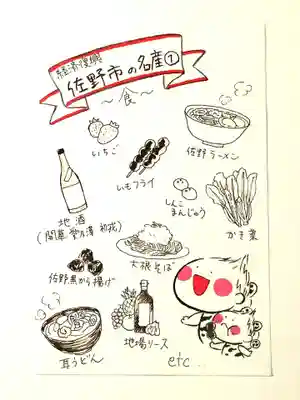 経済復興
佐野市の名産①
～食～
いちご
佐野ラーメン
いもフライ
しんこ
まんじゅう
地酒
(開華 燦爛 初花)
かき菜
大根そば
佐野黒から揚げ
耳うどん
地場ソース
etc